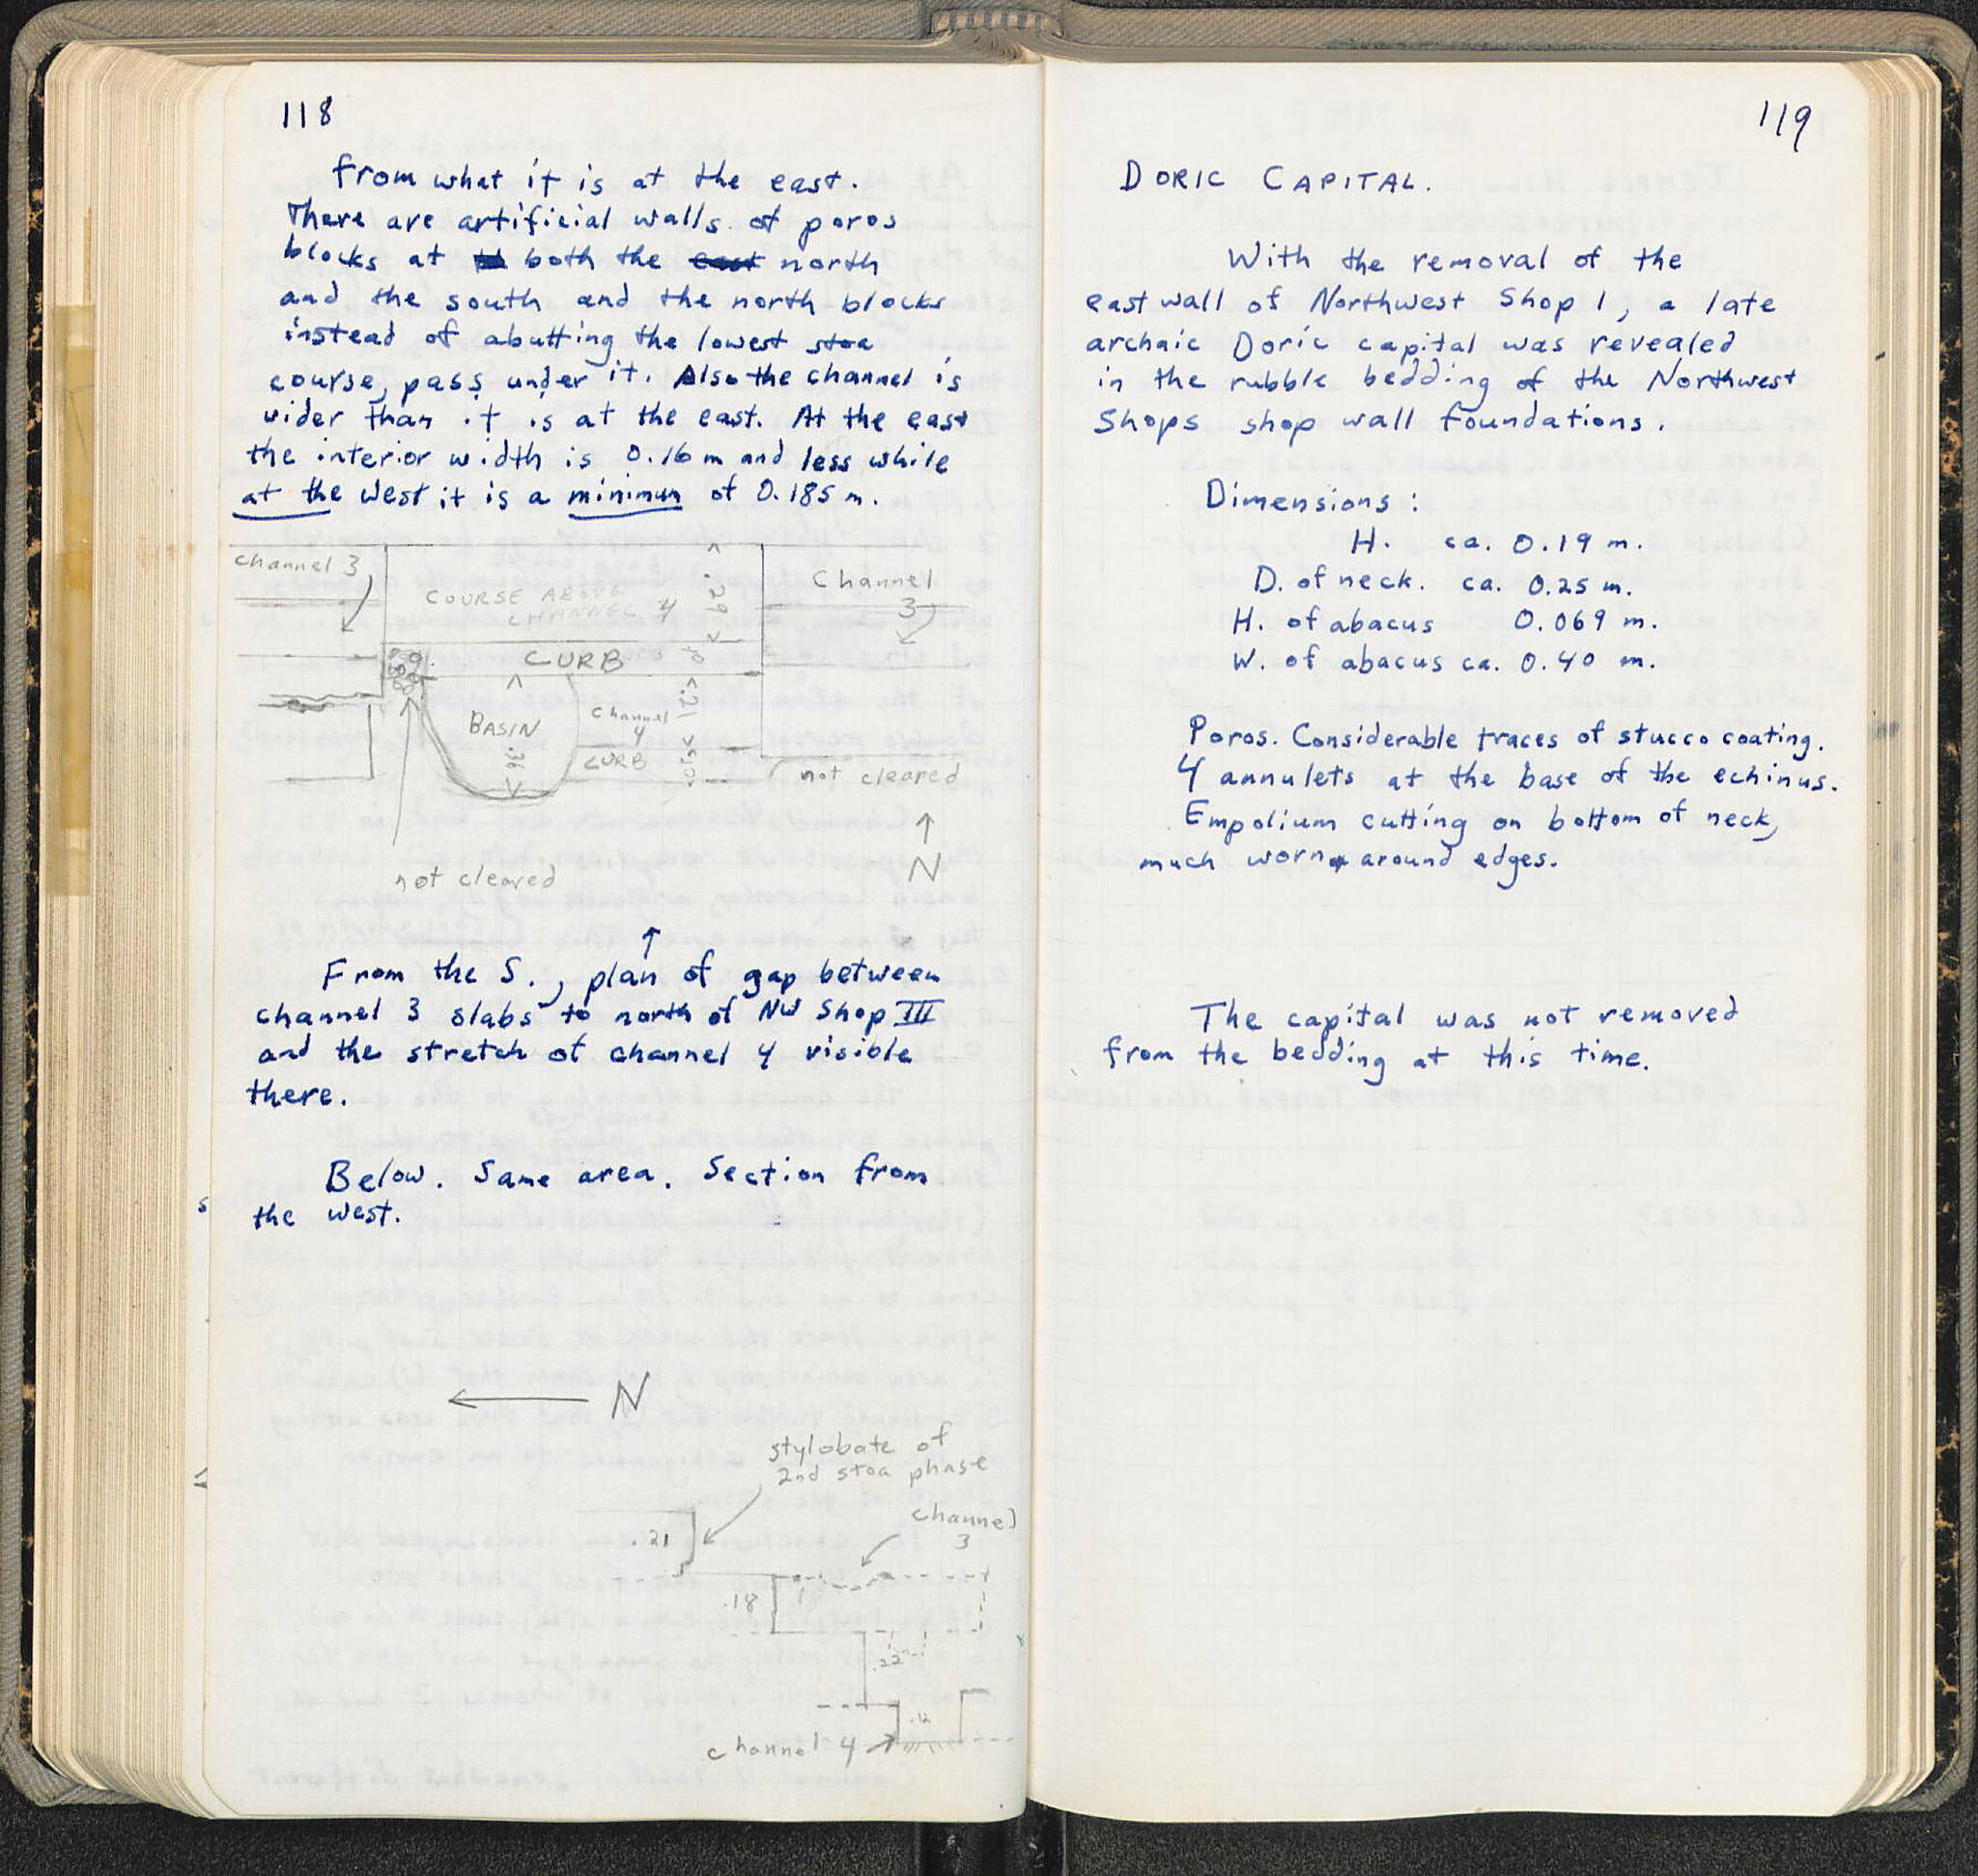 118
from what it is at the east.
There are artificial walls of poros
blocks at both the east north
and the south and the north blocks
instead of abutting the lowest stoa
course, pass under it. Also the channel is
wider than it is at the east. At the east
the interior width is 0.16 m and less while
at the west it is a minimum of 0.185 m.
Channel 3
COURSE ABOVE
CHANNEL 4
.29
Channel
3
CURB
BASIN
Channel
4
CURB
not cleared
N
not cleared
From the S., plan of gap between
channel 3 slabs to north of NW Shop III
and the stretch of channel 4 visible
there.
Below. Same area. Section from
the west.
N
stylobate of
2nd stoa phase
channel
3
.21
.18
.22
.12
channel 4
119
DORIC CAPITAL.
With the removal of the
east wall of Northwest Shop 1, a late
archaic Doric capital was revealed
in the rubble bedding of the Northwest
Shops shop wall foundations.
Dimensions:
H. ca. 0.19 m.
D. of neck. ca. 0.25 m.
H. of abacus 0.069 m.
W. of abacus ca. 0.40 m.
Poros. Considerable traces of stucco coating.
4 annulets at the base of the echinus.
Empolium cutting on bottom of neck,
much worn around edges.
The capital was not removed
from the bedding at this time.